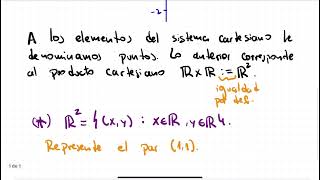 -2
A los elementos del sistema cartesiano le
denominamos puntos. Lo anterior corresponde
al producto cartesiano ℝxℝ := ℝ².
igualdad
por def.
(*) ℝ² = {(x,y) : x∈ℝ, y∈ℝ}.
Represente el par (1,1).
1 de 1